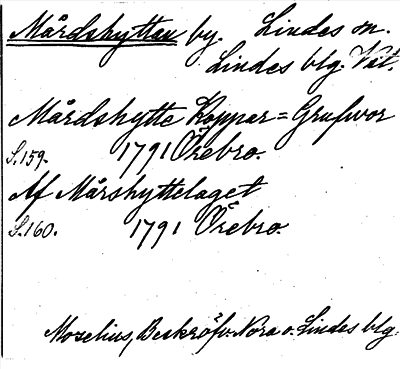 Mårdshyttan by. Lindes sn.
Lindes blg. Vstm.
Mårdshytte Koppar=Grufwor
S.159. 1791 Örebro.
Af Mårshyttelaget
S.160. 1791 Örebro.
Moselius, Beskröfv. Nora o. Lindes blg.